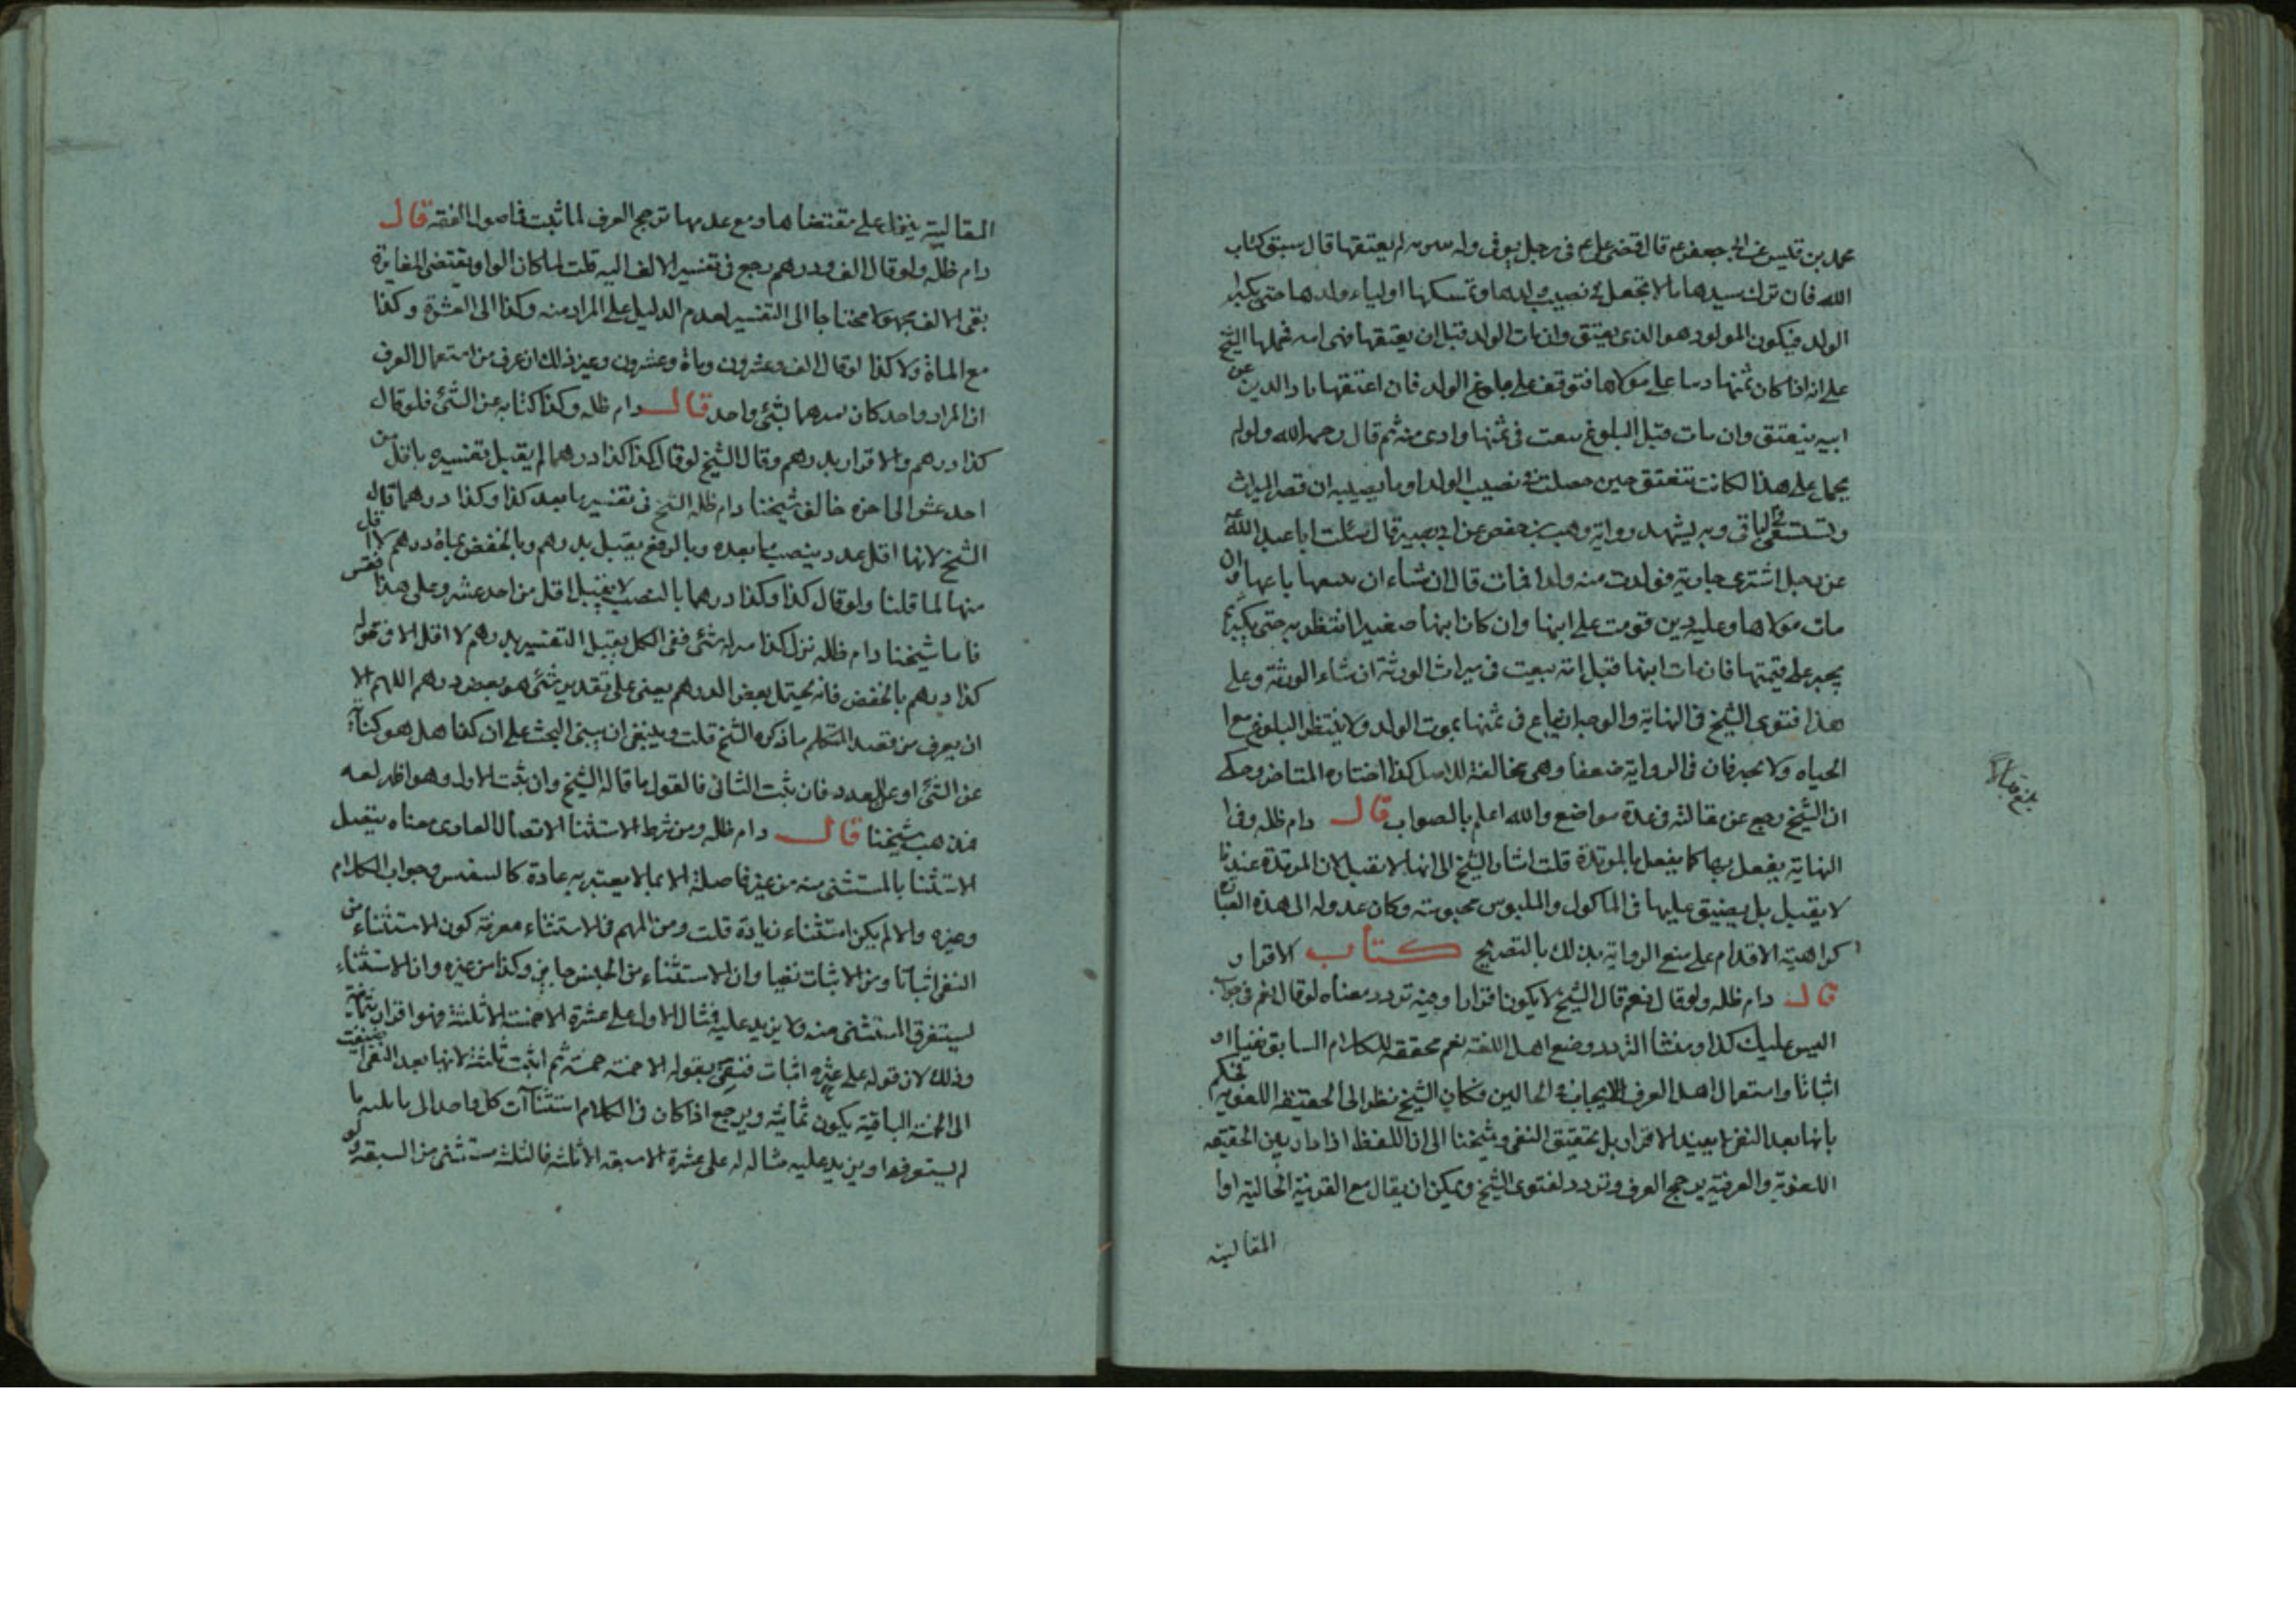 محمد بن قيس عن ابى جعفر ع قال قضى على ع فى رجل توفى وله سريه لم يعتقها قال سبق كتاب
الله فان ترك سيدها مالا تجعل فى نصيب ولدها وتمسكها اولياء ولدها حتى يكبر
الولد فيكون المولود هو الذى يعتق وان مات الولد قبل ان يعتقها فهى امه فحملها الشيخ
على انه اذا كان ثمنها دينا على مولاها فتوقف على بلوغ الولد فان اعتقها بادا الدين عن
ابيه ينعتق وان مات قبل البلوغ بيعت فى ثمنها وادى منه ثم قال رحمه الله ولو لم
يحمل على هذا لكانت تنعتق حين حصلت فى نصيب الولد او ما يصيبه ان قصر الميراث
وتستسعى فى الباقى وبه يشهد رواية وهب بن حفص عن ابى بصير قال سئلت ابا عبد الله ع
عن رجل اشترى جارية فولدت منه ولدا فمات قال ان شاء ان يبيعها باعها وان
مات مولاها وعليه دين قومت على ابنها وان كان ابنها صغيرا انتظر به حتى يكبر ثم
يجبر على قيمتها فان مات ابنها قبل امه بيعت فى ميراث الورثة ان شاء الورثة وعلى
هذا فتوى الشيخ فى النهاية والوجه انها يباع فى ثمنها بموت الولد ولا ينتظر البلوغ مع
الحياه ولا يجبر فان فى الرواية ضعفا وهى مخالفة للاصل كذا اختاره المتاخر وحكى
ان الشيخ رجع عن مقالته فى عدة مواضع والله اعلم بالصواب قال دام ظله وفى
النهاية يفعل بها كما يفعل بالمرتدة قلت اشار الشيخ الى انها لا تقتل لان المرتدة عندنا
لا يقتل بل يضيق عليها فى الماكول والملبوس محبوسة وكان عدوله الى هذه العبارة
كراهية الاقدام على منع الرواية بذلك بالتصريح كتاب الاقرار
قال دام ظله ولو قال نعم قال الشيخ لا يكون اقرارا وفيه تردد معناه لو قال نعم فى جواب
اليس عليك كذا ومنشا التردد وضع اهل اللغة نعم محققه للكلام السابق نفيا او
اثباتا واستعمال اهل العرف للايجاب فى الحالين فكان الشيخ نظر الى الحقيقة اللغوية فحكم
بانها بعد النفى لا يفيد الاقرار بل تحقيق النفى وشيخنا الى ان اللفظ اذا دار بين الحقيقة
اللغوية والعرفية يرجح العرف وتردد لفتوى الشيخ ويمكن ان يقال مع القرينة الحالية او
المقالية
المقالية ينزل على مقتضاها ومع عدمها ترجح العرف لما ثبت فى اصول الفقه قال
دام ظله ولو قال الف ودرهم رجع فى تفسير الالف اليه قلت لما كان الواو يقتضى المغايرة
بقى الالف مجهولا محتاجا الى التفسير لعدم الدليل على المراد منه وكذا الى العشرة وكذا
مع الماة ولا كذا لو قال الف وعشرون وماة وعشرون وغير ذلك ان عرف من استعمال العرف
ان المراد واحد كان مدهما بشئ واحد قال دام ظله وكذا كناية عن الشئ فلو قال
كذا درهم والاقرار بدرهم وقال الشيخ لو قال كذا كذا درهما لم يقبل تفسيره باقل من
احد عشر الى اخره خالف شيخنا دام ظله الشيخ فى تفسير ما بعد كذا وكذا درهما قال
الشيخ لانها اقل عدد ينصب ما بعده وبالرفع يقبل بدرهم وبالخفض بماة درهم لا اقل
منها لما قلنا ولو قال كذا وكذا درهما بالنصب لا يقبل اقل من احد عشر وعلى هذا فقس
فاما شيخنا دام ظله نزل كذا منزلة شئ ففى الكل يقبل التفسير بدرهم لا اقل الا فى قوله
كذا درهم بالخفض فانه يحتمل بعض الدرهم يعنى على تقدير شئ هو بعض درهم اللهم الا
ان يعرف من قصد المتكلم ما ذكره الشيخ قلت وينبغى ان يبنى البحث على ان كذا هل هو كناية
عن الشئ او عن العدد فان ثبت الثانى فالقول ما قاله الشيخ وان ثبت الاول وهو اظهر لغة
فمذهب شيخنا قال دام ظله ومن شرط الاستثنا الاتصال العادى معناه يتصل
الاستثنا بالمستثنى منه من غير فاصلة الا بما لا يعتد به عادة كالتنفس وجواب الكلام
وغيره والا لم يكن استثناء زيادة قلت ومن المهم فى الاستثناء معرفة كون الاستثناء من
النفى اثباتا ومن الاثبات نفيا وان الاستثناء من الجنس جايز وكذا من غيره وان الاستثناء
يستغرق المستثنى منه ولا يزيد عليه فمثال الاول على عشرة الا خمسة الا ثلثة فهو اقرار بثمانية
وذلك لان قوله على عشره اثبات فنفى بقوله الا خمسة خمسة ثم اثبت ثلثة لانها بعد النفى فيضيف
الى الخمسة الباقية يكون ثمانية ويرجع اذا كان فى الكلام استثناآت كل واحد الى ما يليه ما
لم يستوفه او يزيد عليه مثاله له على عشرة الا سبعة الا ثلثه فالثلثه مستثنى من السبعة ولو